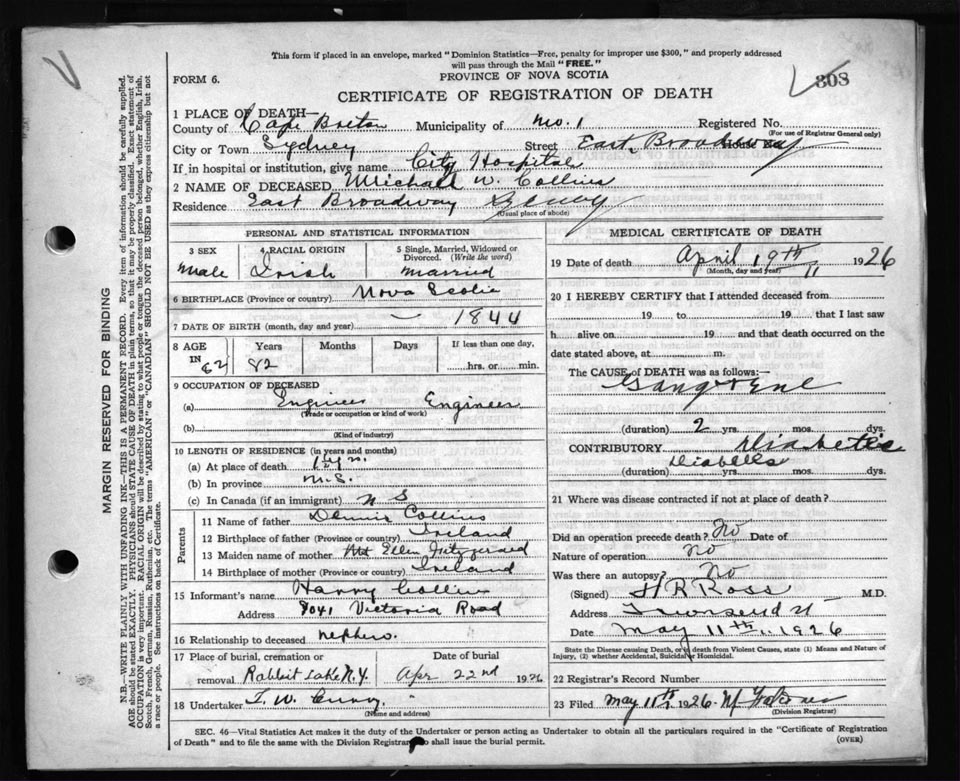 This form if placed in an envelope, marked "Dominion Statistics—Free, penalty for improper use $300," and properly addressed
will pass through the Mail "FREE."
FORM 6.
PROVINCE OF NOVA SCOTIA
308
CERTIFICATE OF REGISTRATION OF DEATH
1 PLACE OF DEATH—
County of Cape Breton Municipality of No. 1 Registered No.
(For use of Registrar General only)
City or Town Sydney Street East Broadway
If in hospital or institution, give name City Hospital
2 NAME OF DECEASED Michael W. Collins
Residence East Broadway Sydney
(Usual place of abode)
PERSONAL AND STATISTICAL INFORMATION
3 SEX 4 RACIAL ORIGIN 5 Single, Married, Widowed or
Divorced. (Write the word)
Male Irish Married
6 BIRTHPLACE (Province or country) Nova Scotia
7 DATE OF BIRTH (month, day and year) — 1844
8 AGE Years Months Days If less than one day,
IN 82 82 hrs. or min.
9 OCCUPATION OF DECEASED
(a) Engineer Engineer
(Trade or occupation or kind of work)
(b)
(Kind of industry)
10 LENGTH OF RESIDENCE (in years and months)
(a) At place of death
(b) In province N.S.
(c) In Canada (if an immigrant) N S
Parents
11 Name of father Dennis Collins
12 Birthplace of father (Province or country) Ireland
13 Maiden name of mother Ellen Fitzgerald
14 Birthplace of mother (Province or country) Ireland
15 Informant's name Harry Collins
Address Victoria Road
16 Relationship to deceased nephew.
17 Place of burial, cremation or removal Date of burial
Apr 22nd 1926
18 Undertaker T. W. Curry
(Name and address)
MEDICAL CERTIFICATE OF DEATH
19 Date of death April 19th 1926
(Month, day and year)
20 I HEREBY CERTIFY that I attended deceased from
19 to 19 that I last saw
h alive on 19 and that death occurred on the
date stated above, at m.
The CAUSE of DEATH was as follows:—
Gangrene
(duration) 2 yrs. mos. dys.
CONTRIBUTORY Diabetes
Diabetes
(duration) yrs. mos. dys.
21 Where was disease contracted if not at place of death?
Did an operation precede death? No Date of
Nature of operation No
Was there an autopsy? No
(Signed) H R Ross M.D.
Address Townsend St
Date May 11th, 1926
State the Disease causing Death, or in death from Violent Causes, state (1) Means and Nature of
Injury, (2) whether Accidental, Suicidal or Homicidal.
22 Registrar's Record Number
23 Filed May 11th, 1926
(Division Registrar)
SEC. 46—Vital Statistics Act makes it the duty of the Undertaker or person acting as Undertaker to obtain all the particulars required in the "Certificate of Registration
of Death" and to file the same with the Division Registrar who shall issue the burial permit.
(OVER)
MARGIN RESERVED FOR BINDING
N.B.—WRITE PLAINLY WITH UNFADING INK—THIS IS A PERMANENT RECORD. Every item of information should be carefully supplied.
AGE should be stated EXACTLY. PHYSICIANS should STATE CAUSE OF DEATH in plain terms, so that it may be properly classified. Exact statement of
OCCUPATION is very important. RACIAL ORIGIN will be described by stating to what people or tongue the deceased person belonged, whether English, Irish,
Scotch, French, German, Russian, Ruthenian, etc. The terms "AMERICAN" or "CANADIAN" SHOULD NOT BE USED as they express citizenship but not
a race or people. See instructions on back of Certificate.